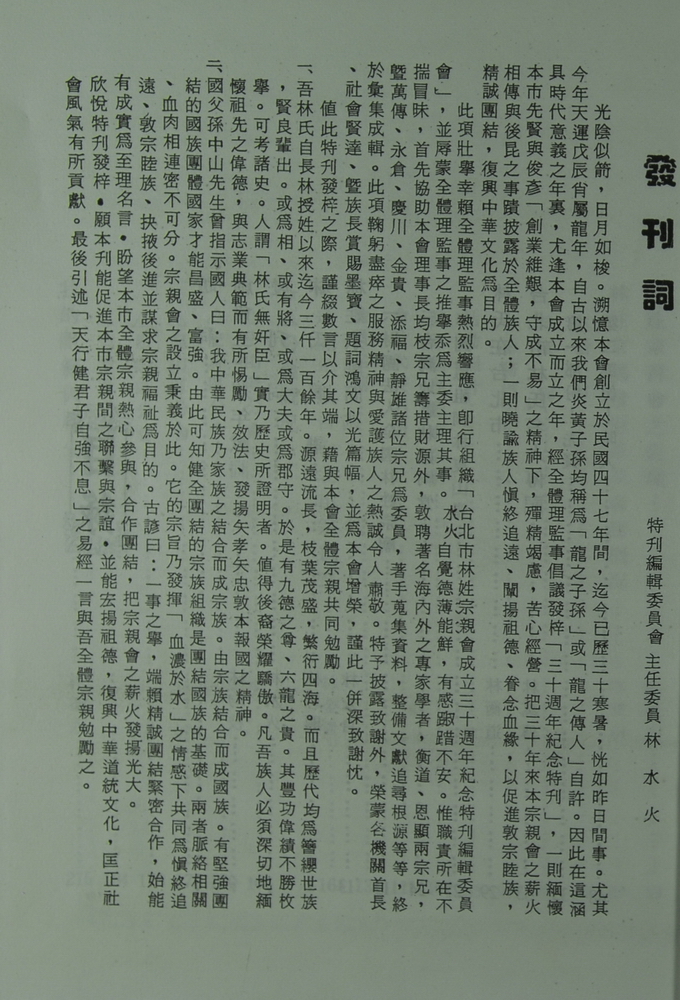 發刊詞
特刊編輯委員會 主任委員 林水火
光陰似箭，日月如梭。溯憶本會創立於民國四十七年間，迄今已歷三十寒暑，恍如昨日間事。尤其
今年天運戊辰肖屬龍年，自古以來我們炎黃子孫均稱爲「龍之子孫」或「龍之傳人」自許。因此在這涵
具時代意義之年裏，尤逢本會成立而立之年，經全體理監事倡議發梓「三十週年紀念特刊」，一則緬懷
本市先賢與俊彥「創業維艱，守成不易」之精神下，殫精竭慮，苦心經營。把三十年來本宗親會之薪火
相傳與後昆之事蹟披露於全體族人；一則曉諭族人愼終追遠、闡揚祖德、眷念血緣，以促進敦宗睦族，
精誠團結，復興中華文化爲目的。
此項壯舉幸賴全體理監事熱烈響應，卽行組織「台北市林姓宗親會成立三十週年紀念特刊編輯委員
會」，並辱蒙全體理監事之推舉忝爲主委主理其事。水火自覺德薄能鮮，有感踧踖不安。惟職責所在不
揣冒昧，首先協助本會理事長均枝宗兄籌措財源外，敦聘著名海內外之專家學者，衡道、恩顯兩宗兄，
曁萬傳、永倉、慶川、金貴、添福、靜雄諸位宗兄爲委員，著手蒐集資料，整備文獻追尋根源等等，終
於彙集成輯。此項鞠躬盡瘁之服務精神與愛護族人之熱誠令人肅敬。特予披露致謝外，榮蒙各機關首長
、社會賢達、曁族長賞賜墨寶、題詞鴻文以光篇幅，並爲本會增榮，謹此一併深致謝忱。
值此特刊發梓之際，謹綴數言以介其端，藉與本會全體宗親共同勉勵。
一、吾林氏自長林授姓以來迄今三仟一百餘年。源遠流長，枝葉茂盛，繁衍四海。而且歷代均爲簪纓世族
，賢良輩出。或爲相、或有將、或爲大夫或爲郡守。於是有九德之尊、六龍之貴。其豐功偉績不勝枚
舉。可考諸史。人謂「林氏無奸臣」實乃歷史所證明者。值得後裔榮耀驕傲。凡吾族人必須深切地緬
懷祖先之偉德，與志業典範而有所惕勵、效法、發揚矢孝矢忠敦本報國之精神。
二、國父孫中山先生曾指示國人曰：我中華民族乃家族之結合而成宗族。由宗族結合而成國族。有堅強團
結的國族團體國家才能昌盛、富強。由此可知健全團結的宗族組織是團結國族的基礎。兩者脈絡相關
、血肉相連密不可分。宗親會之設立秉義於此。它的宗旨乃發揮「血濃於水」之情感下共同爲愼終追
遠、敦宗睦族、抉掖後進並謀求宗親福祉爲目的。古諺曰：一事之舉，端賴精誠團結緊密合作，始能
有成實爲至理名言。盼望本市全體宗親熱心參與，合作團結，把宗親會之薪火發揚光大。
欣悅特刊發梓。願本刊能促進本市宗親間之聯繫與宗誼。並能宏揚祖德，復興中華道統文化，匡正社
會風氣有所貢獻。最後引述「天行健君子自強不息」之易經一言與吾全體宗親勉勵之。